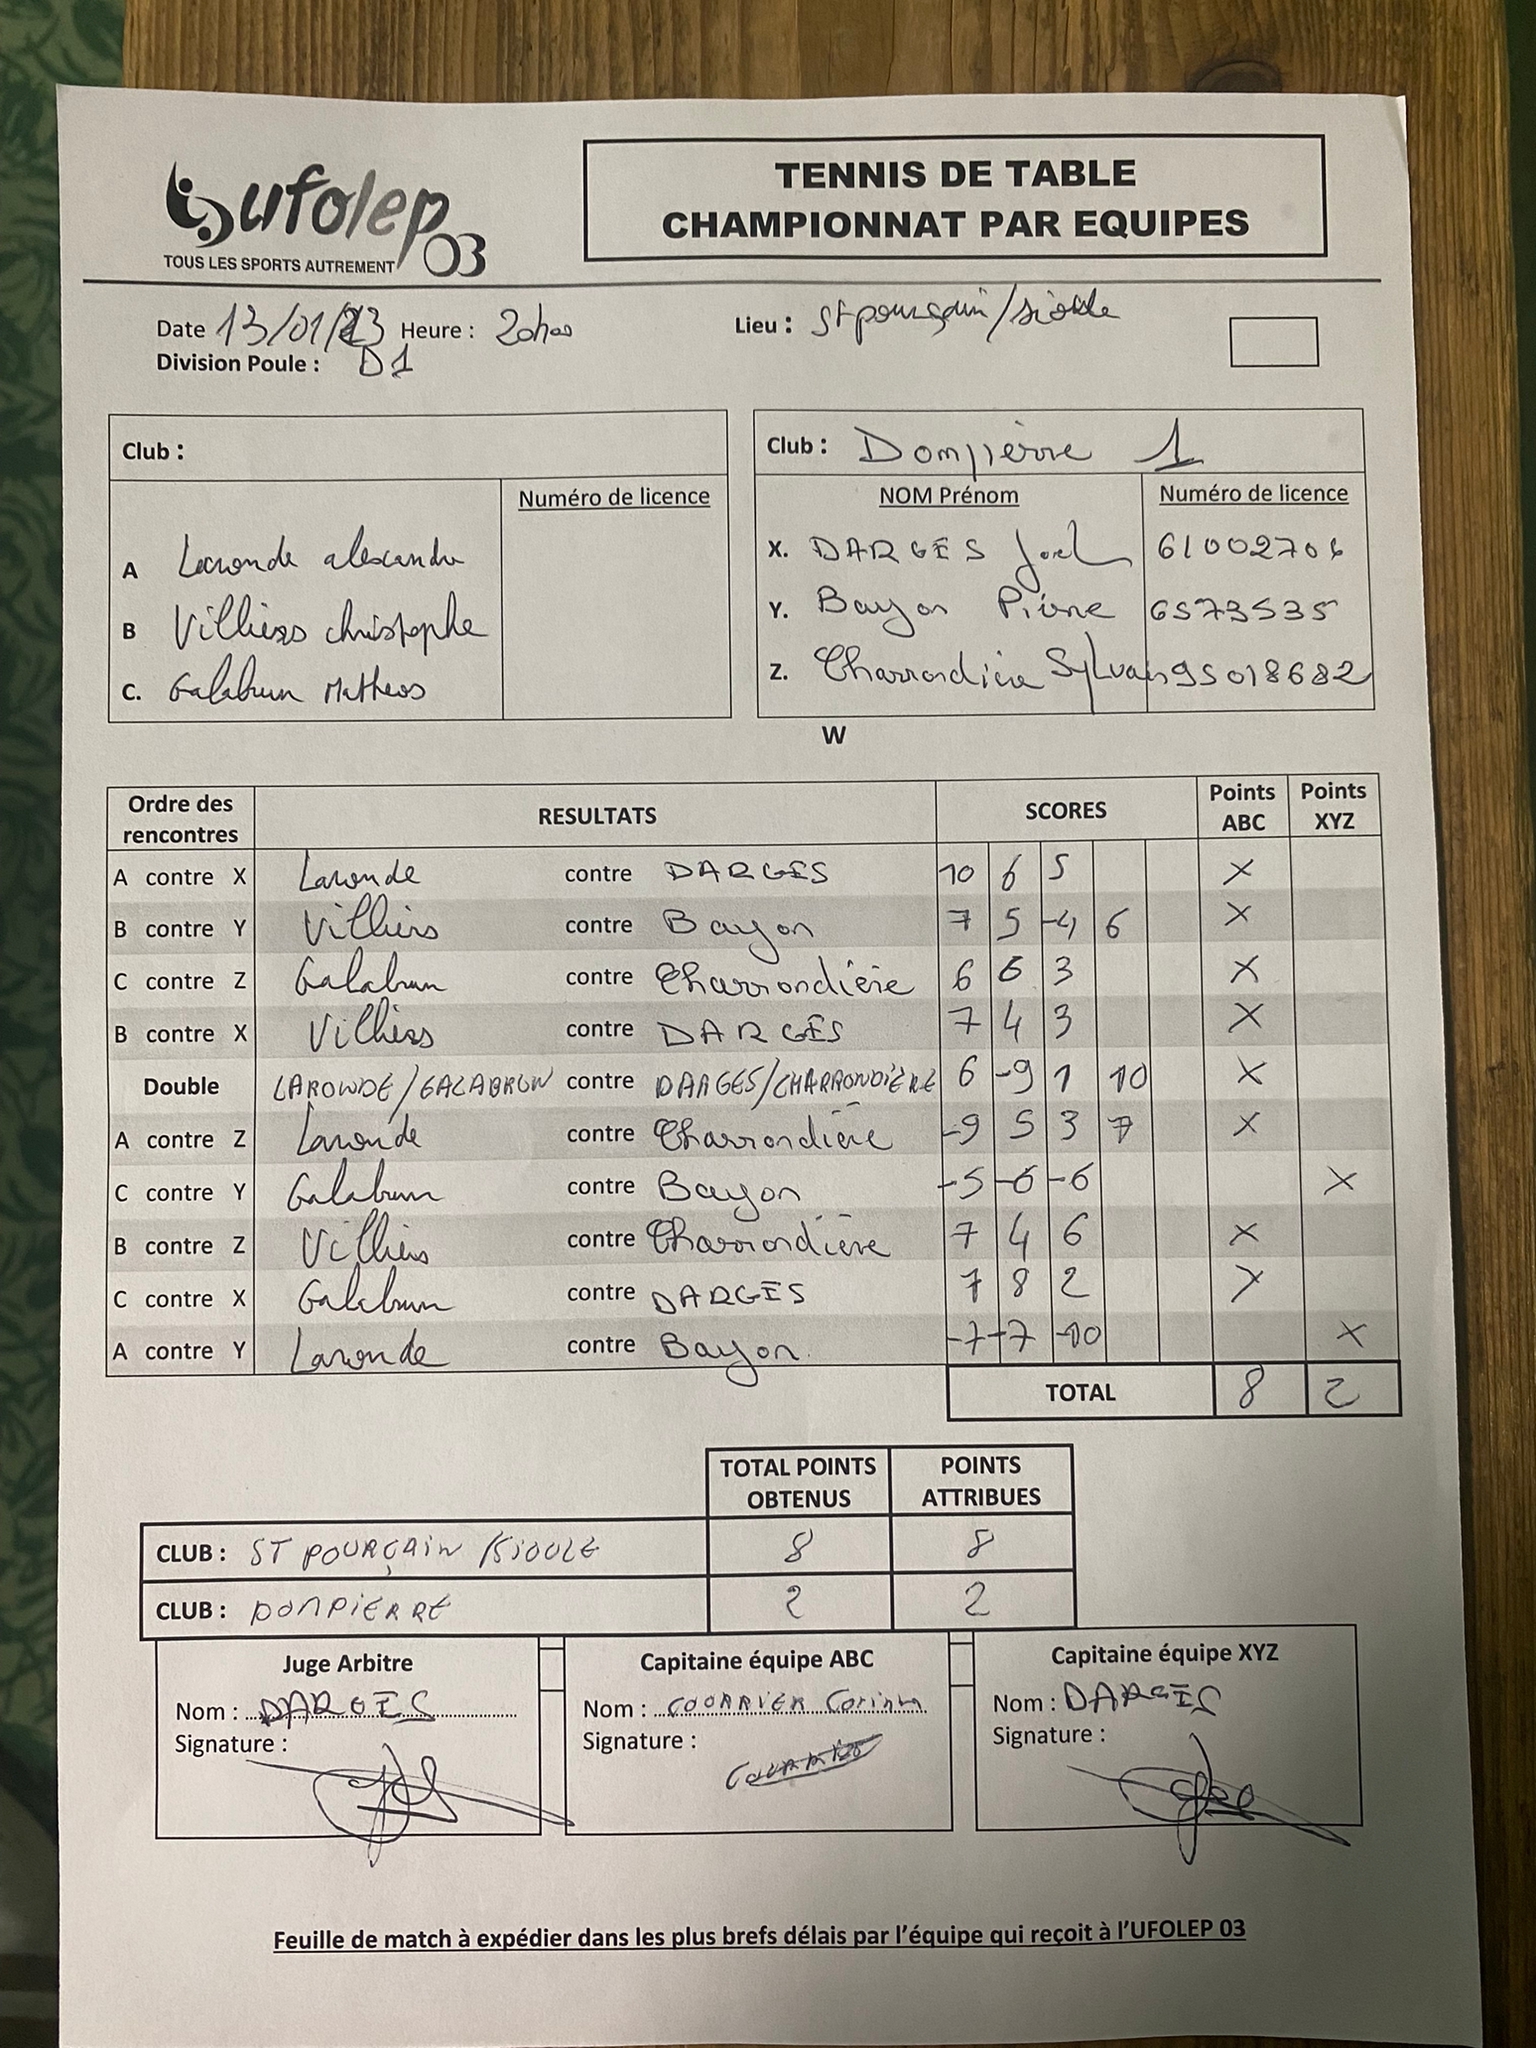 ufolep 03
TOUS LES SPORTS AUTREMENT
TENNIS DE TABLE
CHAMPIONNAT PAR EQUIPES
Date 13/01/23 Heure : 20h00 Lieu : St pourçain/sioule
Division Poule : D1
Club :
Numéro de licence
A Laronde alexandre
B Villiers christophe
C. Galabrun Matheos
Club : Dompierre 1
NOM Prénom Numéro de licence
X. DARGÈS Joel 61002706
Y. Bayon Pierre 6573535
Z. Charrondière Sylvain 95018682
W
Ordre des rencontres RESULTATS SCORES Points ABC Points XYZ
A contre X Laronde contre DARGÈS 10 6 5 X
B contre Y Villiers contre Bayon 7 5 -4 6 X
C contre Z Galabrun contre Charrondière 6 6 3 X
B contre X Villiers contre DARGÈS 7 4 3 X
Double LARONDE/GALABRUN contre DARGES/CHARRONDIÈRE 6 -9 1 10 X
A contre Z Laronde contre Charrondière -9 5 3 7 X
C contre Y Galabrun contre Bayon -5 -6 -6 X
B contre Z Villiers contre Charrondière 7 4 6 X
C contre X Galabrun contre DARGÈS 7 8 2 X
A contre Y Laronde contre Bayon -7 -7 -10 X
TOTAL 8 2
TOTAL POINTS OBTENUS POINTS ATTRIBUES
CLUB : ST POURÇAIN /SIOULE 8 8
CLUB : DOMPIERRE 2 2
Juge Arbitre
Nom : DARGÈS
Signature :
Capitaine équipe ABC
Nom : COURRIER Corinne
Signature :
Capitaine équipe XYZ
Nom : DARGÈS
Signature :
Feuille de match à expédier dans les plus brefs délais par l'équipe qui reçoit à l'UFOLEP 03